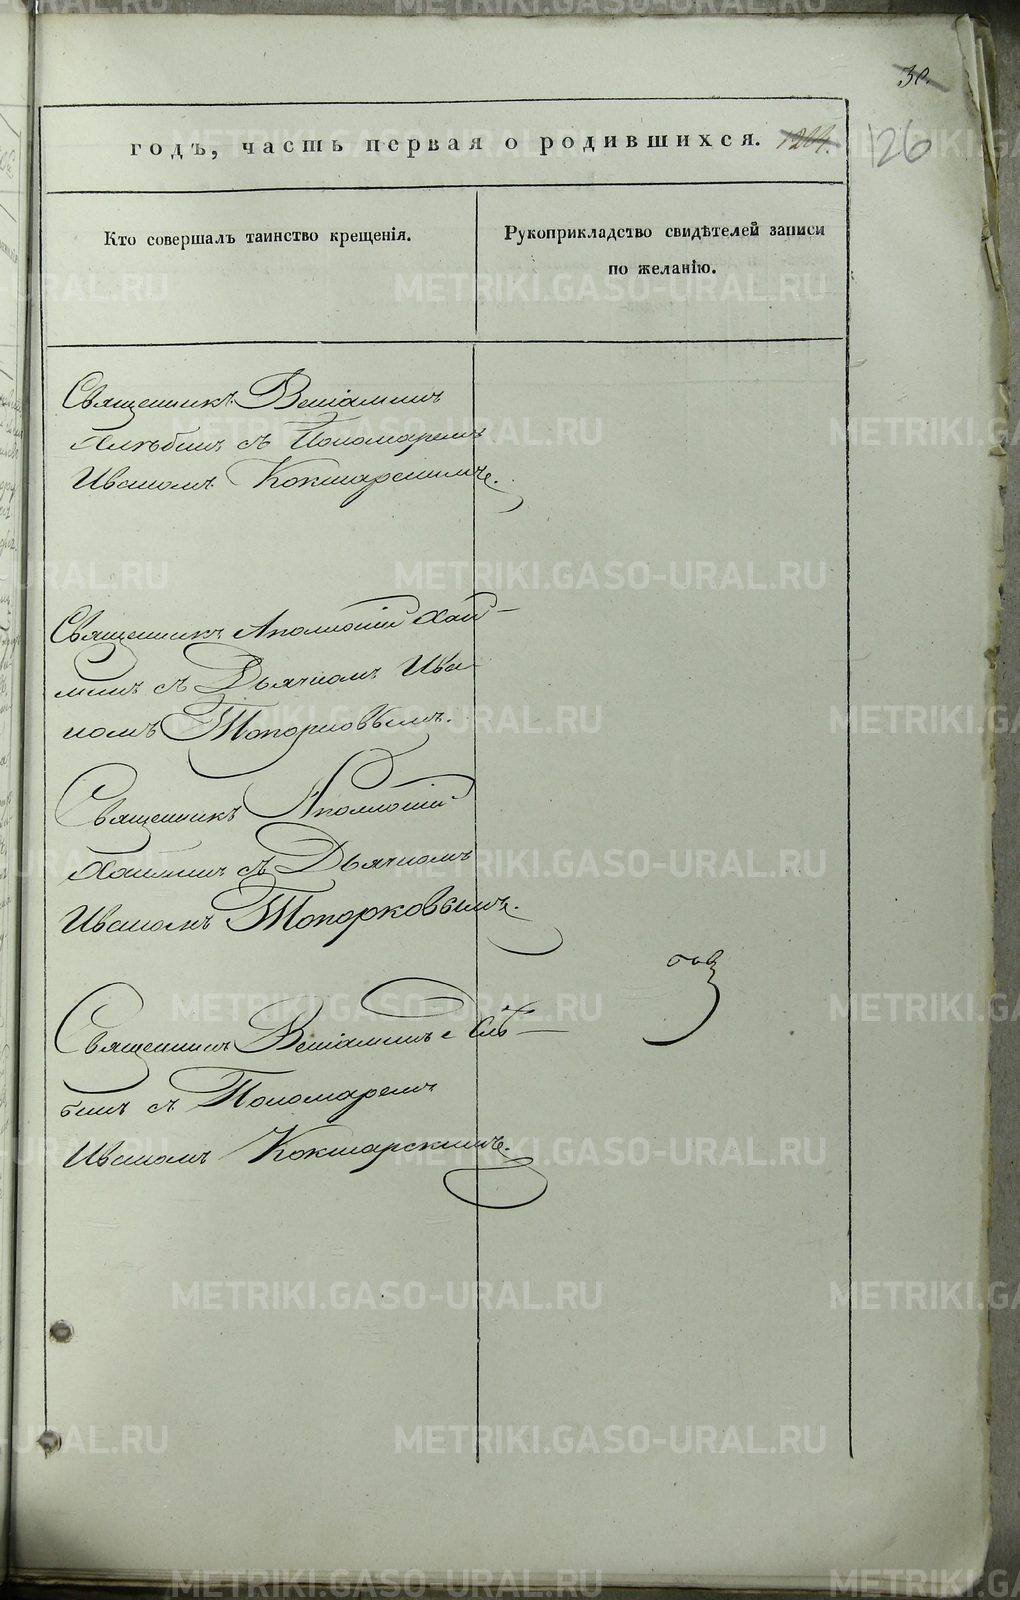 30.
годъ, часть первая о родившихся. 1204. 126
Кто совершалъ таинство крещенія.
Рукоприкладство свидѣтелей записи
по желанію.
Священникъ Веніаминъ
съ Пономаремъ
Иваномъ Кокшарскимъ.
Священникъ Аполлосій Хай-
минъ съ Дьячкомъ Ива
номъ Топорковымъ.
Священникъ Аполлосій
Хайминъ съ Дьячкомъ
Иваномъ Топорковымъ.
Священникъ Веніаминъ
бинъ съ Пономаремъ
Иваномъ Кокшарскимъ.
METRIKI.GASO-URAL.RU